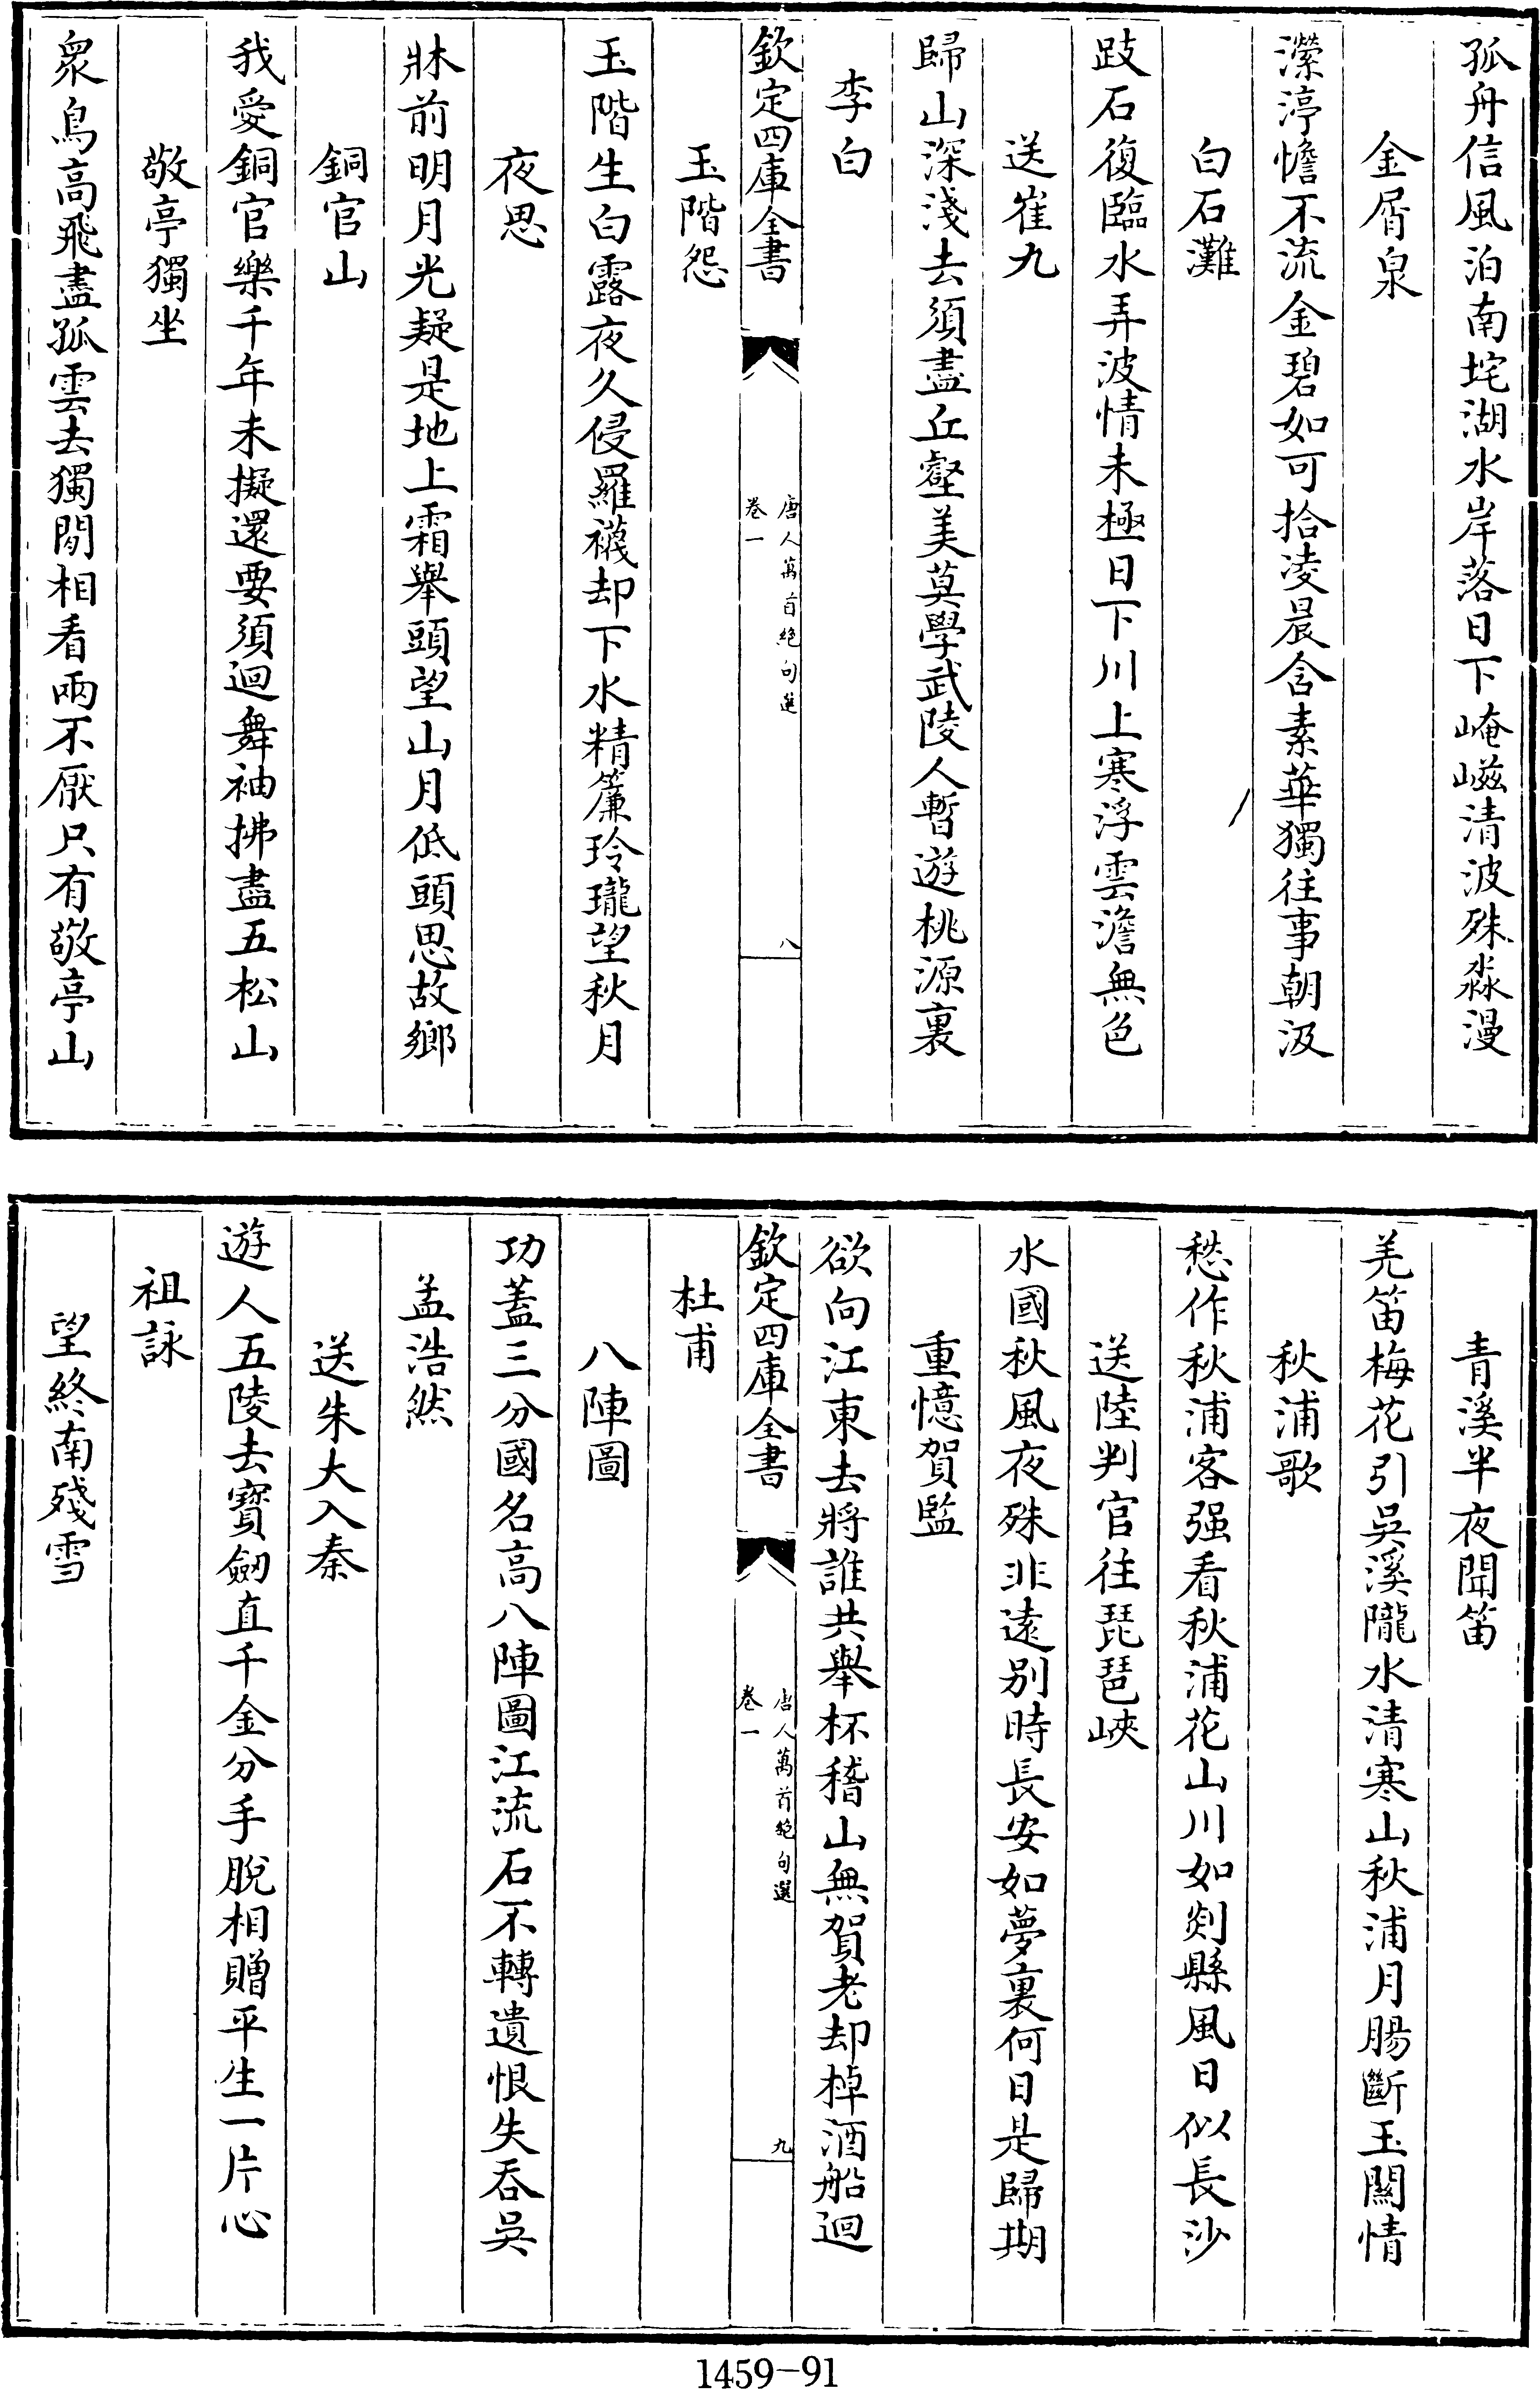 孤舟信風泊南垞湖水岸落日下崦嵫清波殊淼漫
金屑泉
瀠渟憺不流金碧如可拾淩晨含素華獨往事朝汲
白石灘
跂石復臨水弄波情未極日下川上寒浮雲澹無色
送崔九
歸山深淺去須盡丘壑美莫學武陵人暫遊桃源裏
李白
欽定四庫全書
唐人萬首絶句選
卷一
八
玉階怨
玉階生白露夜久侵羅襪却下水精簾玲瓏望秋月
夜思
牀前明月光疑是地上霜舉頭望山月低頭思故鄉
銅官山
我愛銅官樂千年未擬還要須迴舞袖拂盡五松山
敬亭獨坐
衆鳥高飛盡孤雲去獨閒相看兩不厭只有敬亭山
青溪半夜聞笛
羌笛梅花引吳溪隴水清寒山秋浦月腸斷玉關情
秋浦歌
愁作秋浦客强看秋浦花山川如剡縣風日似長沙
送陸判官往琵琶峽
水國秋風夜殊非遠别時長安如夢裏何日是歸期
重憶賀監
欲向江東去將誰共舉杯稽山無賀老却棹酒船迴
欽定四庫全書
唐人萬首絶句選
卷一
九
杜甫
八陣圖
功蓋三分國名高八陣圖江流石不轉遺恨失吞吳
孟浩然
送朱大入秦
遊人五陵去寶劒直千金分手脫相贈平生一片心
祖詠
望終南殘雪
1459-91